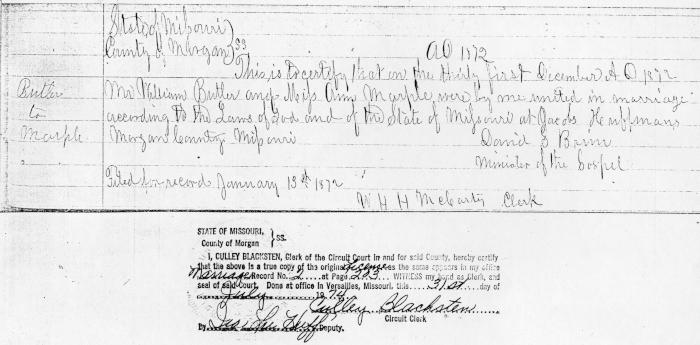 State of Missouri }
County of Morgan } SS
A D 1872
This is to certify that on the thirty first December A.D. 1872
Butler
to
Marple
Mr William Butler and Miss Ann Marple were by me united in marriage
according to the Laws of God and of the State of Missouri at Jacobs Huffmans
Morgan County Missouri
Minister of the Gospel
Filed for record January 13th 1872
W H H McCarty Clerk
STATE OF MISSOURI,
County of Morgan } SS.
I, CULLEY BLACKSTEN, Clerk of the Circuit Court in and for said County, hereby certify
that the above is a true copy of the original License as the same appears in my office
Marriage Record No. 2 at Page 263 WITNESS my hand as Clerk, and
seal of said Court. Done at office in Versailles, Missouri, this 31st day of
July 1974
Culley Blacksten
Circuit Clerk
By Deputy.